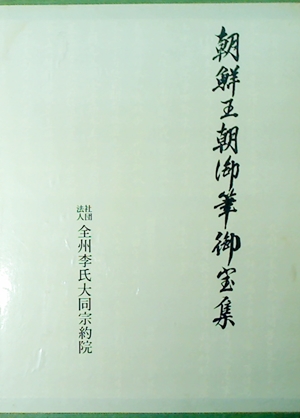 朝鮮王朝御筆御宝集
社団法人 全州李氏大同宗約院